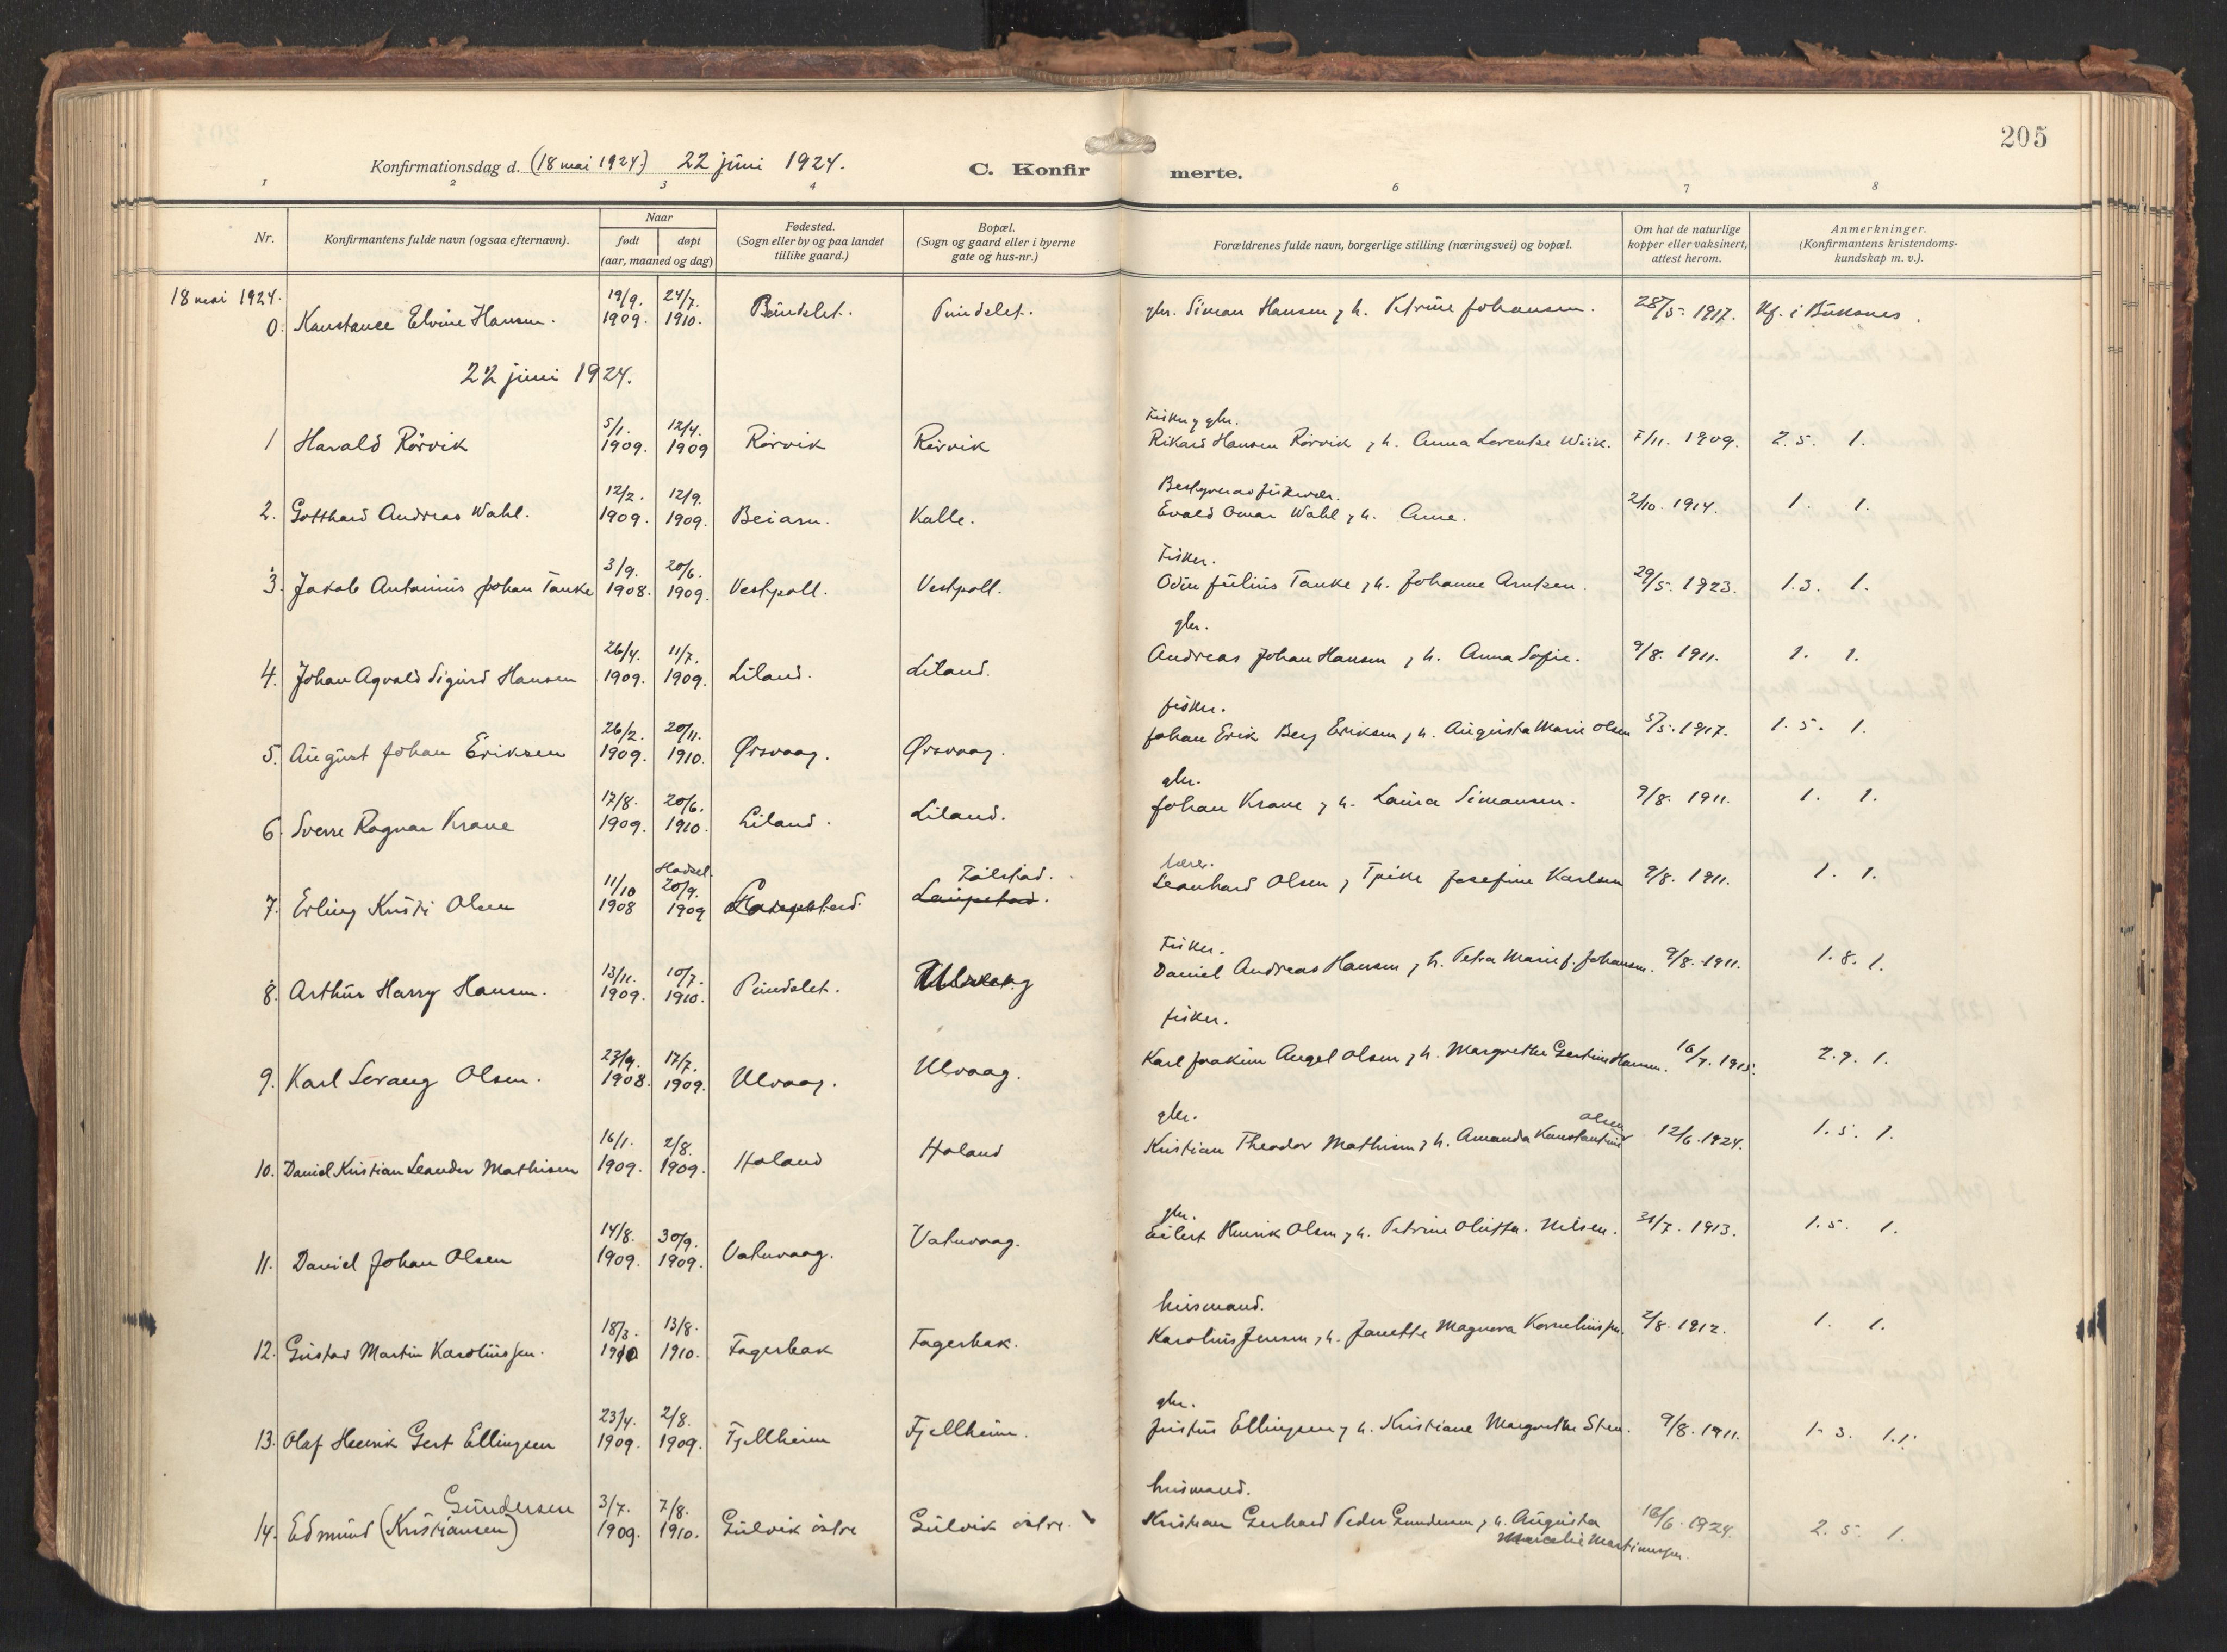 205
Konfirmationsdag d. (18 mai 1924) 22 juni 1924.
C. Konfirmerte.
1 2 3 4 6 7 8
Nr.
Konfirmantens fulde navn (ogsaa efternavn).
Naar
født døpt
(aar, maaned og dag)
Fødested.
(Sogn eller by og paa landet
tillike gaard.)
Bopæl.
(Sogn og gaard eller i byerne
gate og hus-nr.)
Forældrenes fulde navn, borgerlige stilling (næringsvei) og bopæl.
Om hat de naturlige
kopper eller vaksinert,
attest herom.
Anmerkninger.
(Konfirmantens kristendoms-
kundskap m. v.).
18 mai 1924.
19/9. 24/7.
0. Konstance Elvine Hansen. 1909. 1910. Pundslet. Pundslet. gbr. Simon Hansen, h. Petrine Johansen. 28/5. 1917. Kf. i Buksnes.
22 juni 1924.
5/1. 12/4. Fisker, gbr.
1 Harald Rörvik 1909. 1909 Rörvik Rörvik Rikard Hansen Rörvik, h. Anna Lorentse Wiik. 7/11. 1909. 2.5. 1.
12/2. 12/9.
2. Gotthard Andreas Wahl. 1909. 1909. Beiarn. Kalle. Evald Omar Wahl, h. Anne. 2/10. 1914. 1. 1.
3/9. 20/6. Fisker.
3. Jakob Antonius Johan Tanke 1908. 1909. Vestpoll. Vestpoll. Odin Julius Tanke, h. Johanne Arntsen. 29/5. 1923. 1.3. 1.
26/4. 11/7. gbr.
4. Johan Agvald Sigurd Hansen 1909. 1909. Liland. Liland. Andreas Johan Hansen, h. Anna Sofie. 9/8. 1911. 1. 1.
26/2. 20/11. fisker.
5. August Johan Eriksen 1909. 1910. Ørsvaag. Ørsvaag. Johan Erik Berg Eriksen, h. Augusta Marie Olsen 5/5. 1917. 1.5. 1.
17/8. 20/6. gbr.
6. Sverre Ragnar Krane 1909. 1910. Liland. Liland. Johan Krane, h. Laura Simonsen. 9/8. 1911. 1. 1.
Hadsel.
11/10 20/9. lærer.
7. Erling Kristi Olsen 1908 1909 Laupstad. Laupstad. Leonhard Olsen, Josefine Karlsen 9/8. 1911. 1. 1.
13/11. 10/7. Fisker.
8. Arthur Harry Hansen. 1909. 1910. Pundslet. Ulvaag Daniel Andreas Hansen, h. Petra Marie f. Johansen. 9/8. 1911. 1.8. 1.
23/9. 17/7. fisker.
9. Karl Serang Olsen. 1908. 1909. Ulvaag. Ulvaag. Karl Joakim Angel Olsen, h. Margrethe Gertine Hansen. 16/7. 1915. 2.9. 1.
16/1. 2/8. gbr. Olsen
10. Daniel Kristian Leander Mathisen 1909. 1909. Holand Holand Kristian Theodor Mathisen, h. Amanda Konstantine 12/6. 1924. 1.5. 1.
14/8. 30/9. gbr.
11. Daniel Johan Olsen 1909. 1909. Vatnvaag. Vatnvaag. Eilert Henrik Olsen, h. Petrine Olufta. Nilsen. 31/7. 1913. 1.5. 1.
18/3. 13/8. husmand.
12. Gustav Martin Karoliussen. 1910 1910. Fagerbak Fagerbak. Karolius Jensen, h. Janette Magnora Korneliussen. 2/8. 1912. 1. 1.
23/4. 2/8. gbr.
13. Olaf Henrik Gert Ellingsen 1909. 1909. Fjellheim Fjellheim. Justus Ellingsen, h. Kristiane Margrethe Sten. 9/8. 1911. 1.3. 1.1.
Gundersen 3/7. 7/8. husmand.
14. Edmund (Kristiansen) 1909. 1910. Gulvik östre Gulvik östre. Kristian Gerhard Peder Gundersen, h. Augusta 12/6. 1924. 2.5. 1.
Marcelie Martinussen.